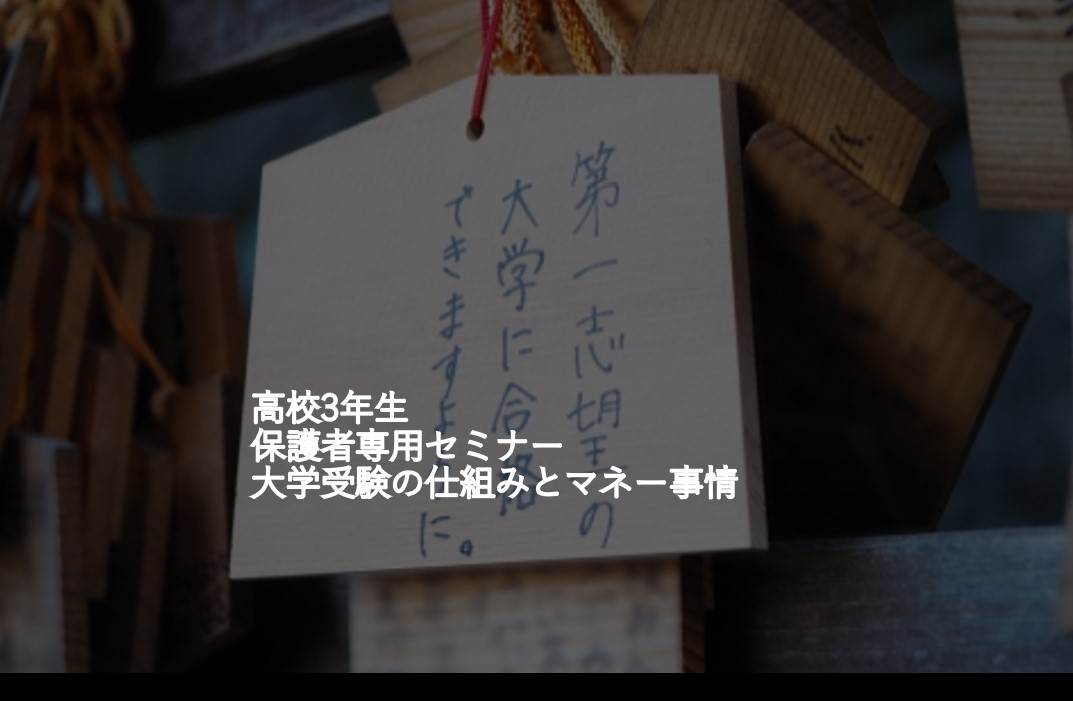 第一志望の
大学に合格
できますように。
高校3年生
保護者専用セミナー
大学受験の仕組みとマネー事情